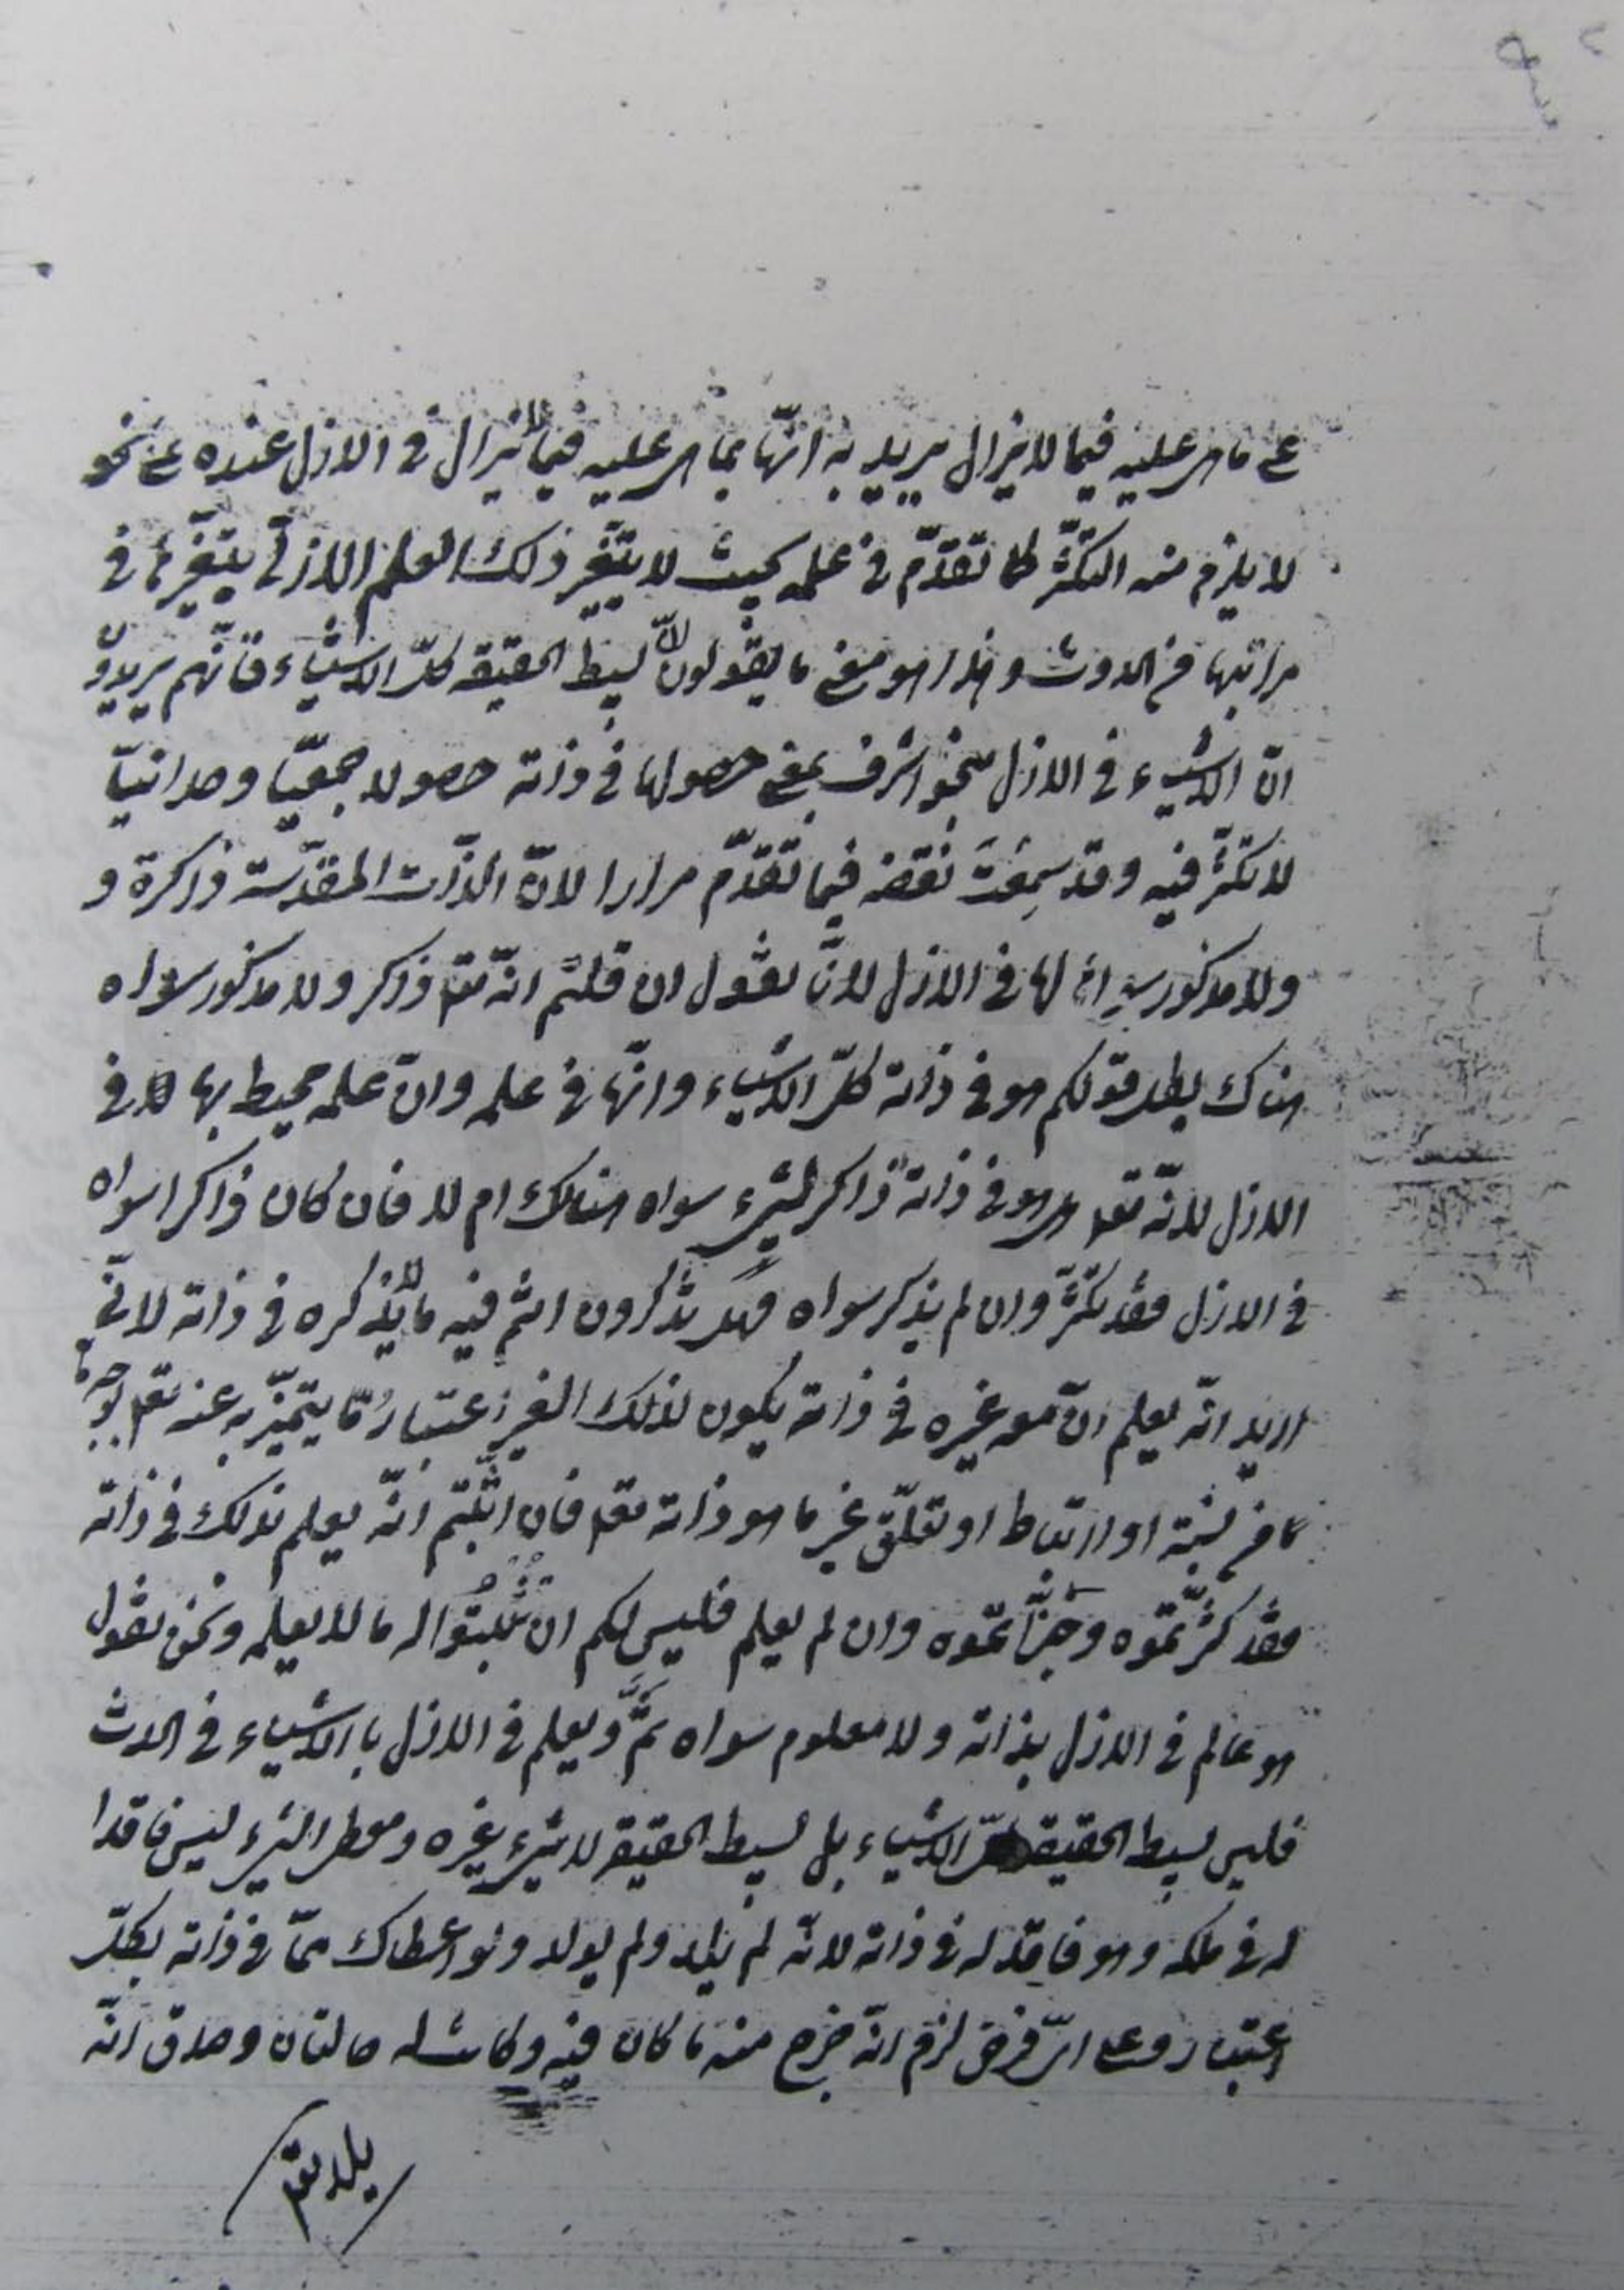 على ما هى عليه فيما لا يزال يريد به انّها بما هى عليه فيما لا يزال فى الازل عنده على نحو
لا يلزم منه التكثّر كما تقدّم فى علمه بحيث لا يتغيّر ذلك العلم الازلى بتغيّرها فى
مراتبها من الحدوث وهذا هو معنى ما يقولون انّ بسيط الحقيقة كلّ الاشياء فانّهم يريدون
انّ الاشياء فى الازل بنحو اشرف بمعنى حصولها فى ذاته حصولا جمعيّا وحدانيّا
لا تكثّر فيه وقد سمِعْتَ نقضه فيما تقدّم مرارا لانّ الذّات المقدّسة ذاكرة و
ولا مذكور سواها لها فى الازل لانّا نقول ان قلتم انّه تعالى ذاكر ولا مذكور سواه
هناك بطل قولكم هو فى ذاته كلّ الاشياء وانّها فى علمه وانّ علمه محيط بها فى
الازل لانّه تعالى هل هو فى ذاته ذاكر لشىء سواه هنالك ام لا فان كان ذاكرا سواه
فى الازل فقد تكثّر وان لم يذكر سواه فهل تذكرون انتم فيه ما لا يذكره فى ذاته لانّى
اريد انّه يعلم انّ معه غيره فى ذاته يكون لذلك الغير اعتبار مّا يتميّز به عنه تعالى بوجه ما
ما من نسبة او ارتباط او تعلّق غير ما هو ذاته تعالى فان اثبتّم انّه يعلم ذلك فى ذاته
فقد كثّرتموه وجزّأتموه وان لم يعلم فليس لكم ان تُثْبِتُوا له ما لا يعلمه ونحن نقول
هو عالم فى الازل بذاته ولا معلوم سواه ثَمَّ ويعلم فى الازل بالاشياء فى الحدث
فليس بسيط الحقيقة كلّ الاشياء بل بسيط الحقيقة لا شىء غيره ومعطى الشىء ليس فاقدا
له فى ملكه وهو فاقد له فى ذاته لانّه لم يلد ولم يولد ولو اعطاك ممّا فى ذاته بكلّ
اعتبار وعلى اىّ فرض لزم انّه خرج منه ما كان فيه وكانت له حالتان وصدق انّه
يلد تعالى